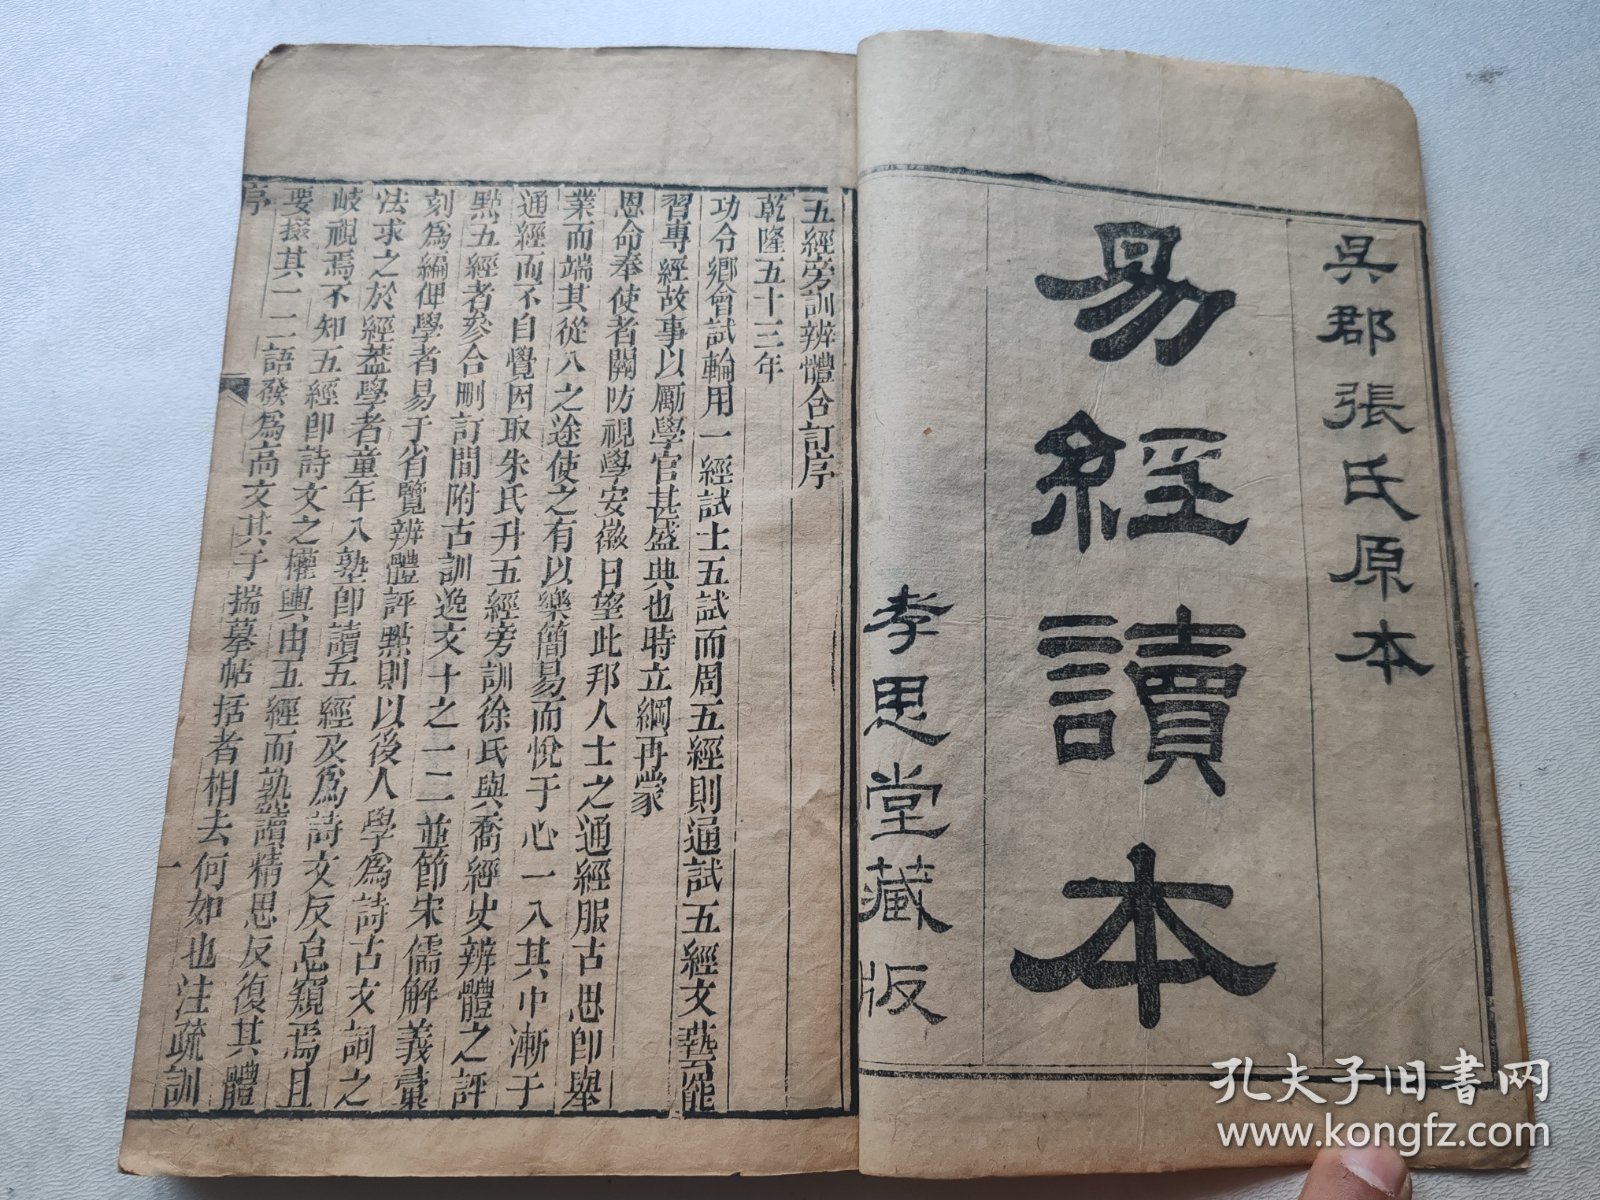 吳郡張氏原本
易經讀本
孝思堂藏版
五經旁訓辨體合訂序
乾隆五十三年
功令鄉會試輪用一經試士五試而周五經則通試五經文藝罷
習專經故事以勵學官甚盛典也時立綱再蒙
恩命奉使者闕防視學安徽日望此邦人士之通經服古思卽舉
業而端其從入之途使之有以樂簡易而悅于心一入其中漸于
通經而不自覺因取朱氏升五經旁訓徐氏與喬經史辨體之評
點五經者參合刪訂間附古訓逸文十之一二並節宋儒解義彙
刻爲編俾學者易于省覽辨體評點則以後人學爲詩古文詞之
法求之於經葢學者童年入塾卽讀五經及爲詩文反怠窺焉且
岐視焉不知五經卽詩文之權輿由五經而孰讀精思反復其體
要掇其一二語發爲高文其于揣摹帖括者相去何如也注疏訓
序
一
孔夫子旧書网
www.kongfz.com